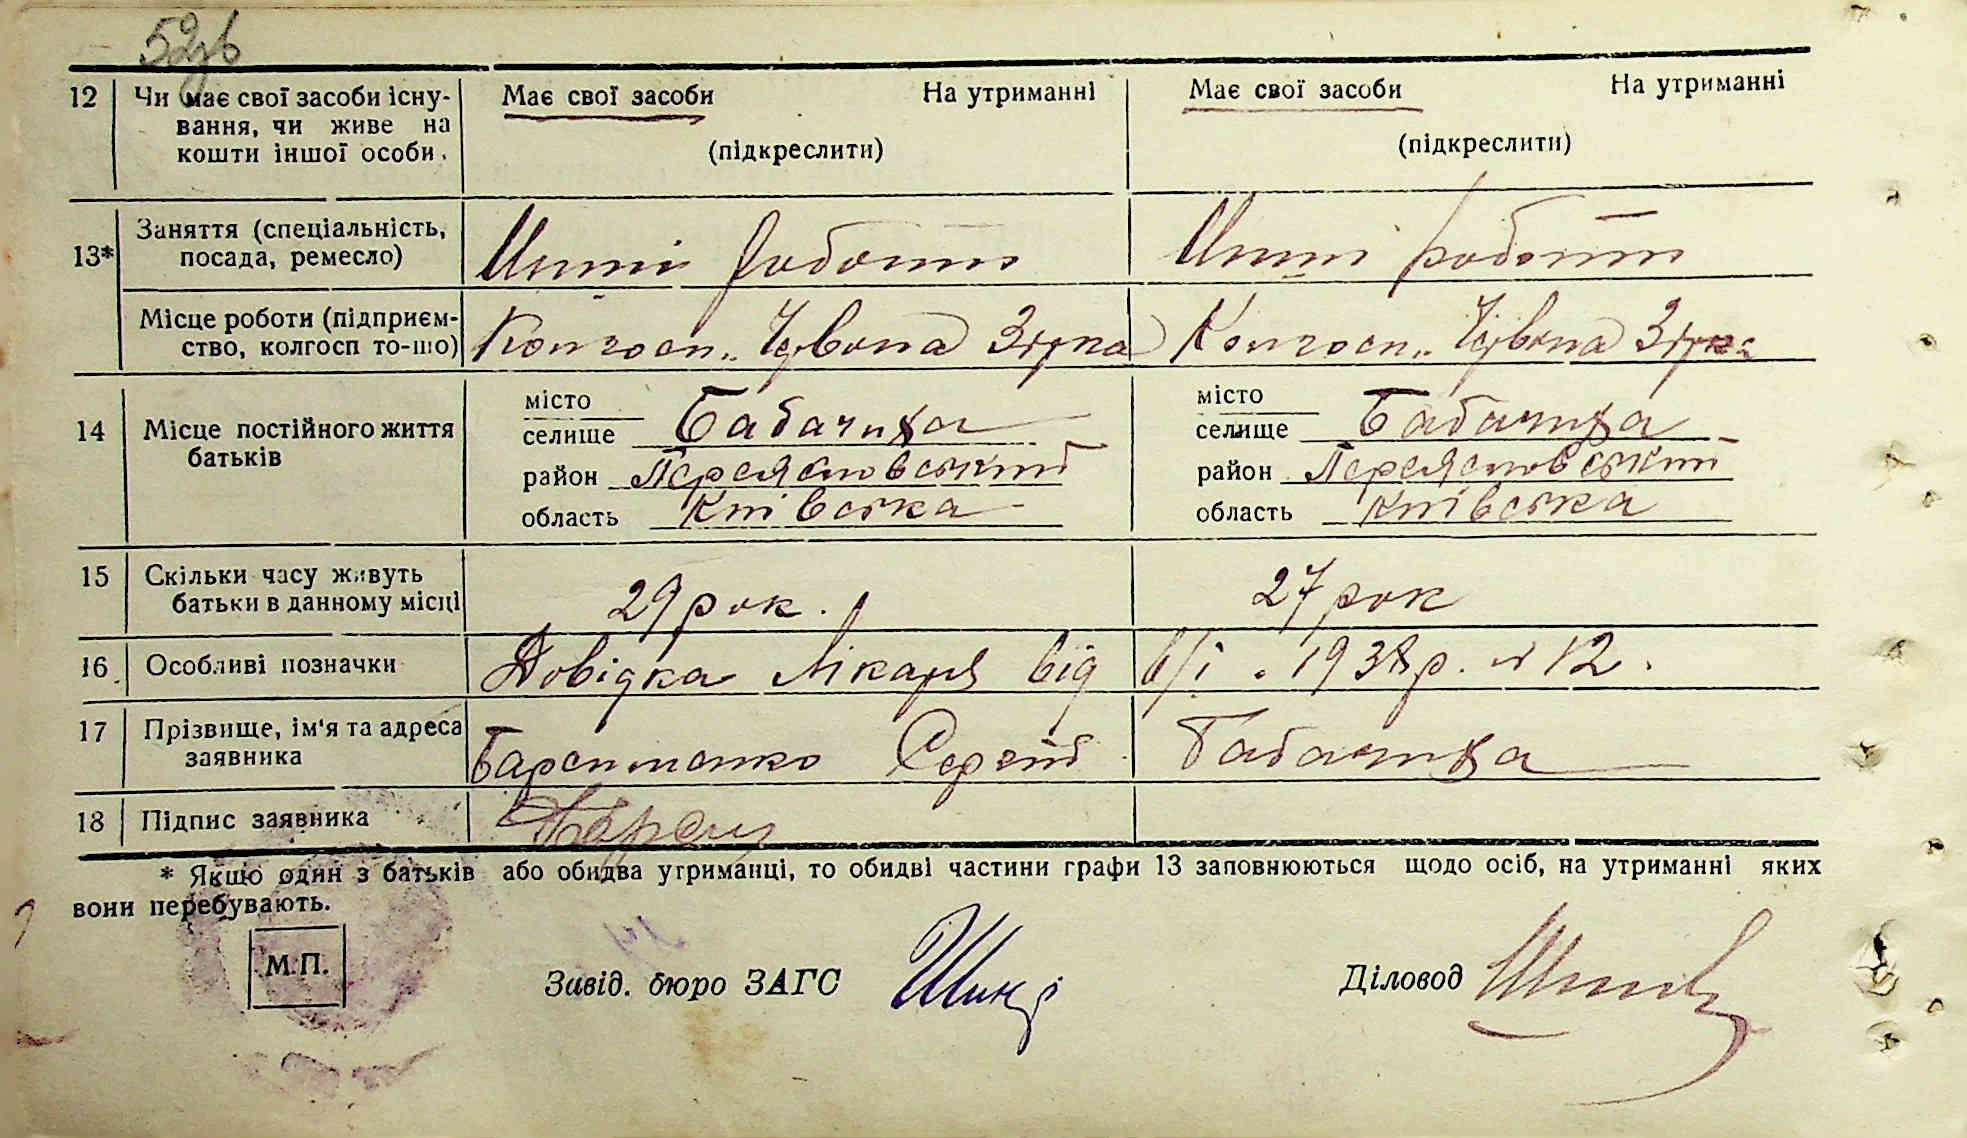 52зв
12 Чи має свої засоби існу- Має свої засоби На утриманні Має свої засоби На утриманні
вання, чи живе на
кошти іншої особи. (підкреслити) (підкреслити)
13* Заняття (спеціальність,
посада, ремесло) Инші роботи Инші роботи
Місце роботи (підприєм-
ство, колгосп то-що) Колгосп „Червона Зірка Колгосп „Червона Зірка
14 Місце постійного життя
батьків
місто місто
селище Бабачиха селище Бабачиха
район Переясловський район Переясловський
область Київська область Київська
15 Скільки часу живуть
батьки в данному місці 29 рок. 27 рок
16 Особливі позначки Довідка Лікаря від 6/I. 1938 р. № 12.
17 Прізвище, ім'я та адреса
заявника Сергій Бабачиха
18 Підпис заявника
* Якщо один з батьків або обидва утриманці, то обидві частини графи 13 заповнюються щодо осіб, на утриманні яких
вони перебувають.
М.П.
Завід. бюро ЗАГС Діловод